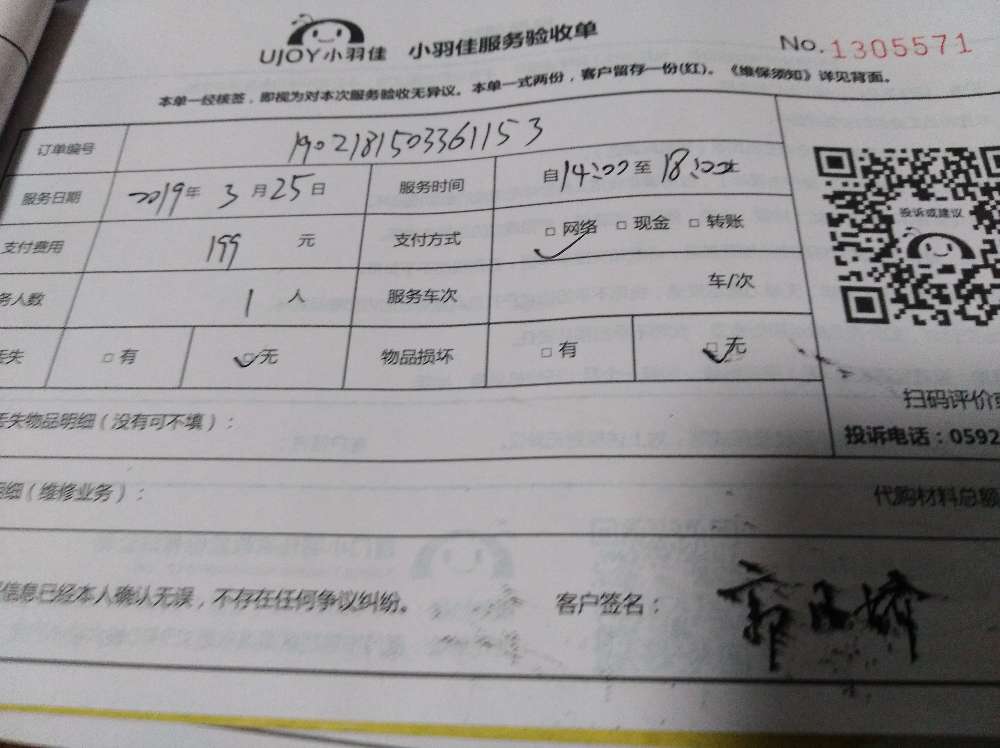 UJOY小羽佳 小羽佳服务验收单 No.1305571
本单一经核签，即视为对本次服务验收无异议。本单一式两份，客户留存一份(红)。《维保须知》详见背面。
订单编号 1902181503361153
服务日期 2019年3月25日 服务时间 自14:00至18:00止
支付费用 199 元 支付方式 □网络 □现金 □转账
务人数 1人 服务车次 车/次
丢失 □有 □无 物品损坏 □有 □无
投诉或建议
扫码评价
丢失物品明细（没有可不填）：
投诉电话：0592
细（维修业务）： 代购材料总额
信息已经本人确认无误，不存在任何争议纠纷。 客户签名：